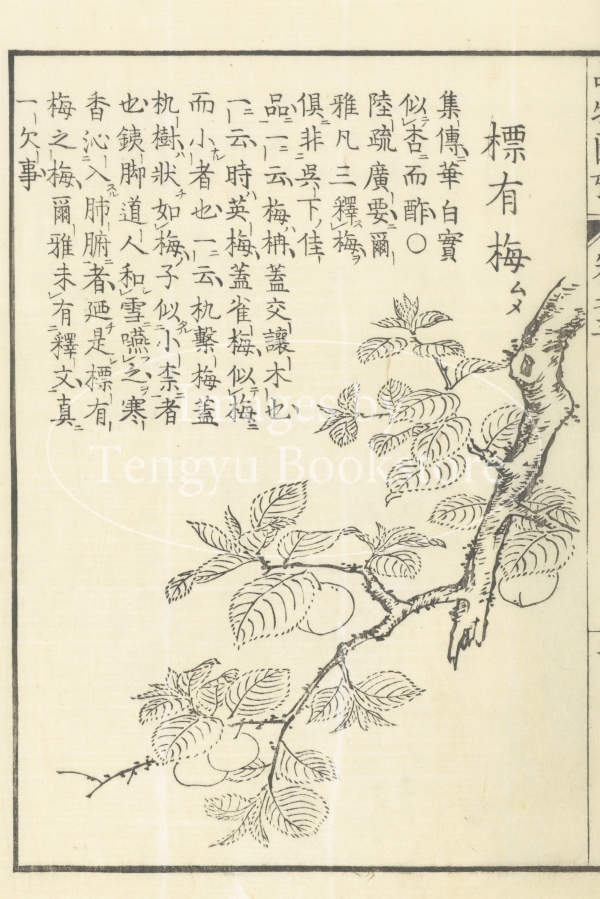 標有梅 ムメ
集傳華白實
似杏而酢〇
陸疏廣要爾
雅凡三釋梅
俱非吳下佳
品一云梅柟蓋交讓木也
一云時英梅蓋雀梅似梅
而小者也一云朹繫梅蓋
朹樹狀如梅子似小柰者
也銕脚道人和雪嚥之寒
香沁入肺腑者廼是標有
梅之梅爾雅未有釋文真
一欠事
Images by
Tengyu Bookstore